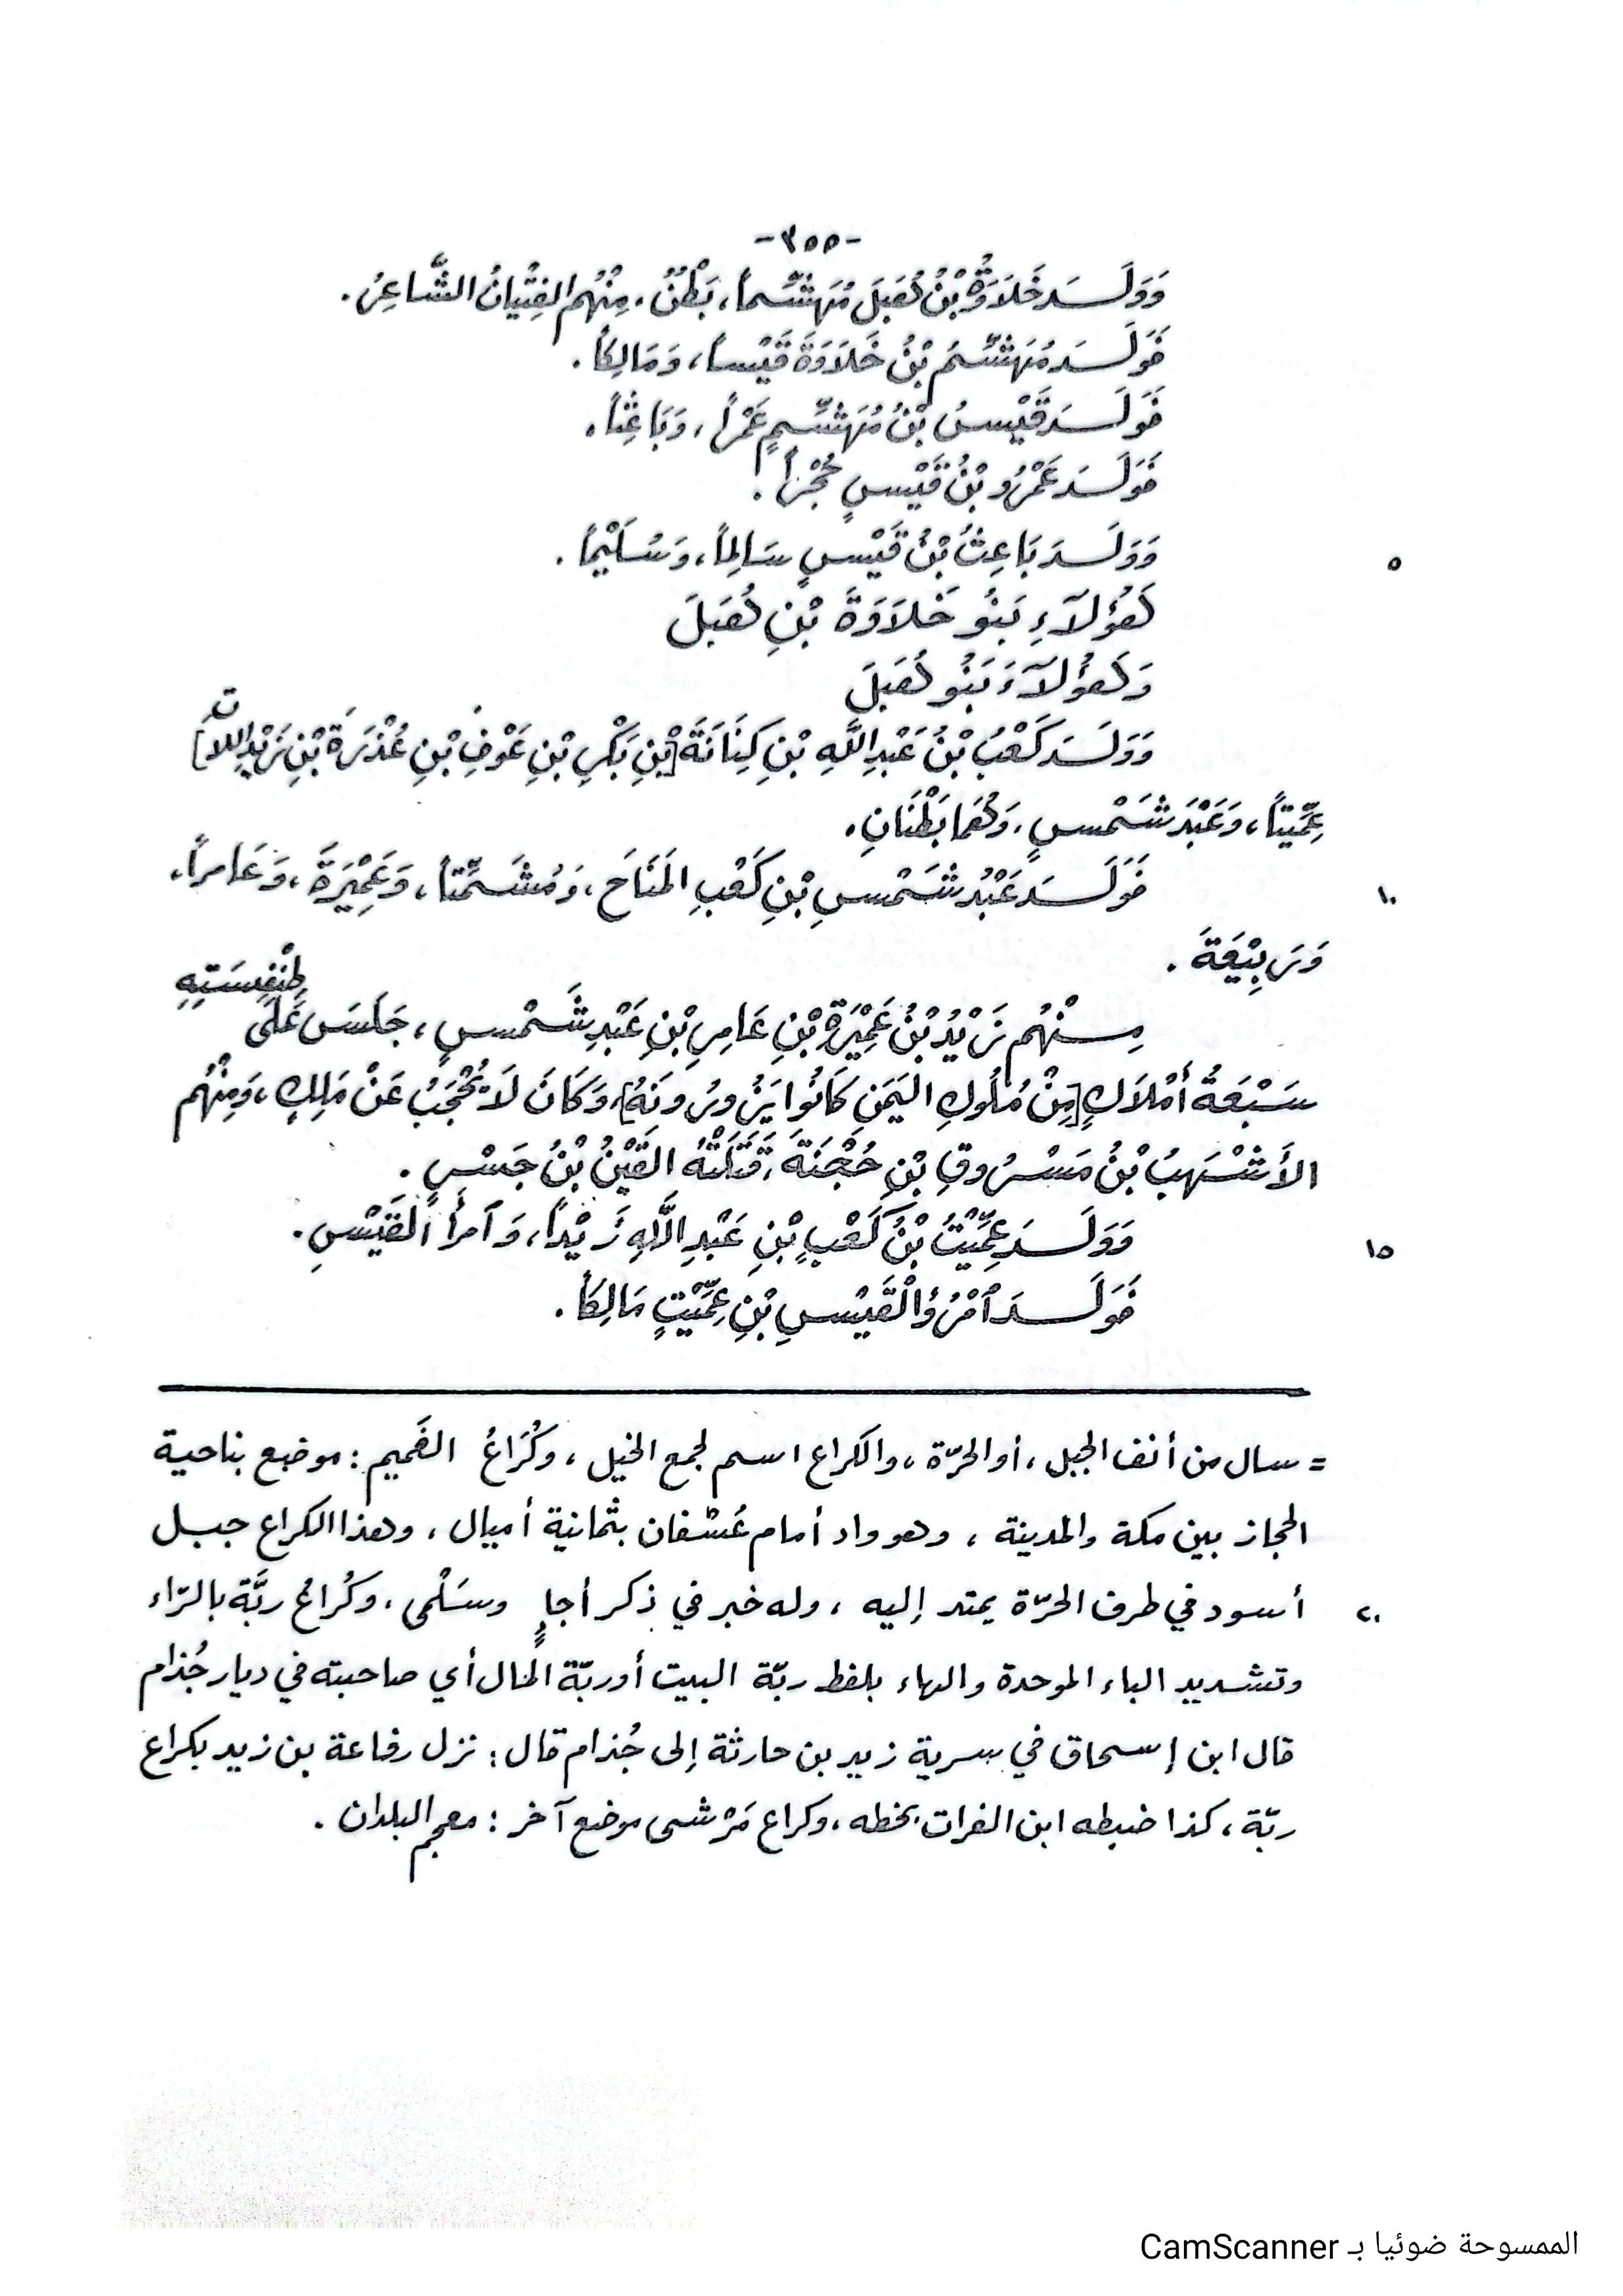 -٣٥٥-
وَوَلَـسَـدَ خَلَاوَةُ بْنُ هُبَلَ مُهَشِّماً، بَطْنٌ. مِنْهُم الفِتْيانُ الشَّاعِرُ.
فَوَلَـدَ مُهَشِّمُ بْنُ خَلَاوَةَ قَيْساً، وَمَالِكاً.
فَوَلَـدَ قَيْسُ بْنُ مُهَشِّمٍ عَمْراً، وَبَاعِثاً.
فَوَلَدَ عَمْرُو بْنُ قَيْسٍ حُجْراً.
وَوَلَـدَ بَاعِثُ بْنُ قَيْسٍ سَالِماً، وَسُلَيْماً. ٥
هَؤُلَآءِ بَنُو خَلَاوَةَ بْنِ هُبَلَ
وَهَؤُلَآءَ بَنُو هُبَلَ
وَوَلَـدَ كَعْبُ بْنُ عَبْدِ اللَّهِ بْنِ كِنَانَةَ [بْنِ بَكْرِ بْنِ عَوْفِ بْنِ عُذْرَةَ بْنِ زَيْدِ اللاتِ]
عِمِّيتاً، وَعَبْدَ شَمْسٍ، وَهُمَا بَطْنَانِ.
فَوَلَـدَ عَبْدُ شَمْسِ بْنِ كَعْبِ المَنَاحَ، وَمُشَمِّتاً، وَعَمِيْرَةَ، وَعَامراً، ١٠
وَرَبِيْعَةَ.
مِـنْهُم زَيْدُ بْنُ عَمِيْرَةَ بْنِ عَامِرِ بْنِ عَبْدِ شَمْسٍ، جَلَسَ عَلَى طِنْفِسَتِهِ
سَبْعَةُ أَمْلَاكٍ [مِنْ مُلُوكِ اليَمَنِ كَانُوا يَزُورُونَهُ]، وَكَانَ لَا يُحْجَبُ عَنْ مَلِكٍ، وَمِنْهُم
الأَشْهَبُ بْنُ مَسْرُوقِ بْنِ حُجْنَةَ، قَتَلَتْهُ القَيْنُ بْنُ جَسْرٍ.
وَوَلَـدَ عِمِّيْتُ بْنُ كَعْبِ بْنِ عَبْدِ اللَّهِ زَيْداً، وَآمرأَ القَيْسِ. ١٥
فَوَلَـدَ اُمْرُؤُ الْقَيْسِ بْنِ عِمِّيْتٍ مَالِكاً.
= سال من أنف الجبل، أو الحرّة، والكراع اسم لجمع الخيل، وكُرَاعُ الغَميم: موضع بناحية
الحجاز بين مكة والمدينة، وهو واد أمام عُسْفان بثمانية أميال، وهذا الكراع جبل
أسود في طرف الحرّة يمتد إليه، وله خبر في ذكر أجإٍ وسَلْمى، وكُراعُ ربَّة بالرّاء ٢٠
وتشديد الباء الموحدة والهاء بلفظ ربّة البيت أو ربّة المال أي صاحبته في ديار جُذام
قال ابن إسحاق في سرية زيد بن حارثة إلى جُذام قال: نزل رفاعة بن زيد بكراع
ربّة، كذا ضبطه ابن الفرات بخطه، وكراع مَرْشى موضع آخر: معجم البلدان.
الممسوحة ضوئيا بـ CamScanner